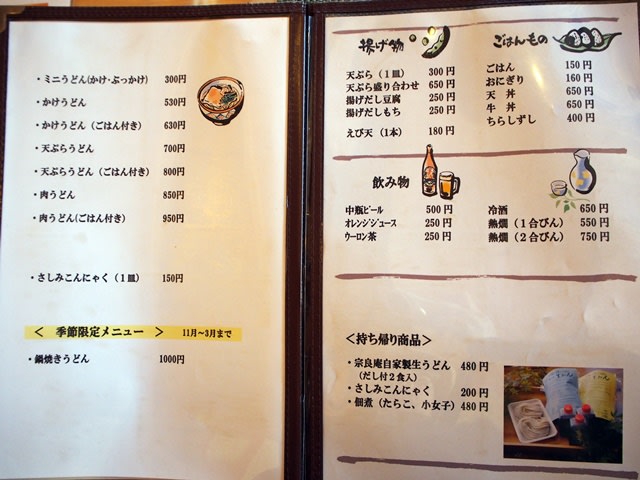 ・ミニうどん(かけ・ぶっかけ) 300円
・かけうどん 530円
・かけうどん（ごはん付き） 630円
・天ぷらうどん 700円
・天ぷらうどん（ごはん付き） 800円
・肉うどん 850円
・肉うどん(ごはん付き） 950円
・さしみこんにゃく（１皿） 150円
＜ 季節限定メニュー ＞ 11月～3月まで
・鍋焼きうどん 1000円
揚げ物
天ぷら（１皿） 300円
天ぷら盛り合わせ 650円
揚げだし豆腐 250円
揚げだしもち 250円
えび天（1本） 180円
ごはんもの
ごはん 150円
おにぎり 160円
天丼 650円
牛丼 650円
ちらしずし 400円
飲み物
中瓶ビール 500円
オレンジジュース 250円
ウーロン茶 250円
冷酒 650円
熱燗（１合びん） 550円
熱燗（２合びん） 750円
＜持ち帰り商品＞
・宗良庵自家製生うどん 480円
（だし付２食入）
・さしみこんにゃく 200円
・佃煮（たらこ、小女子） 480円